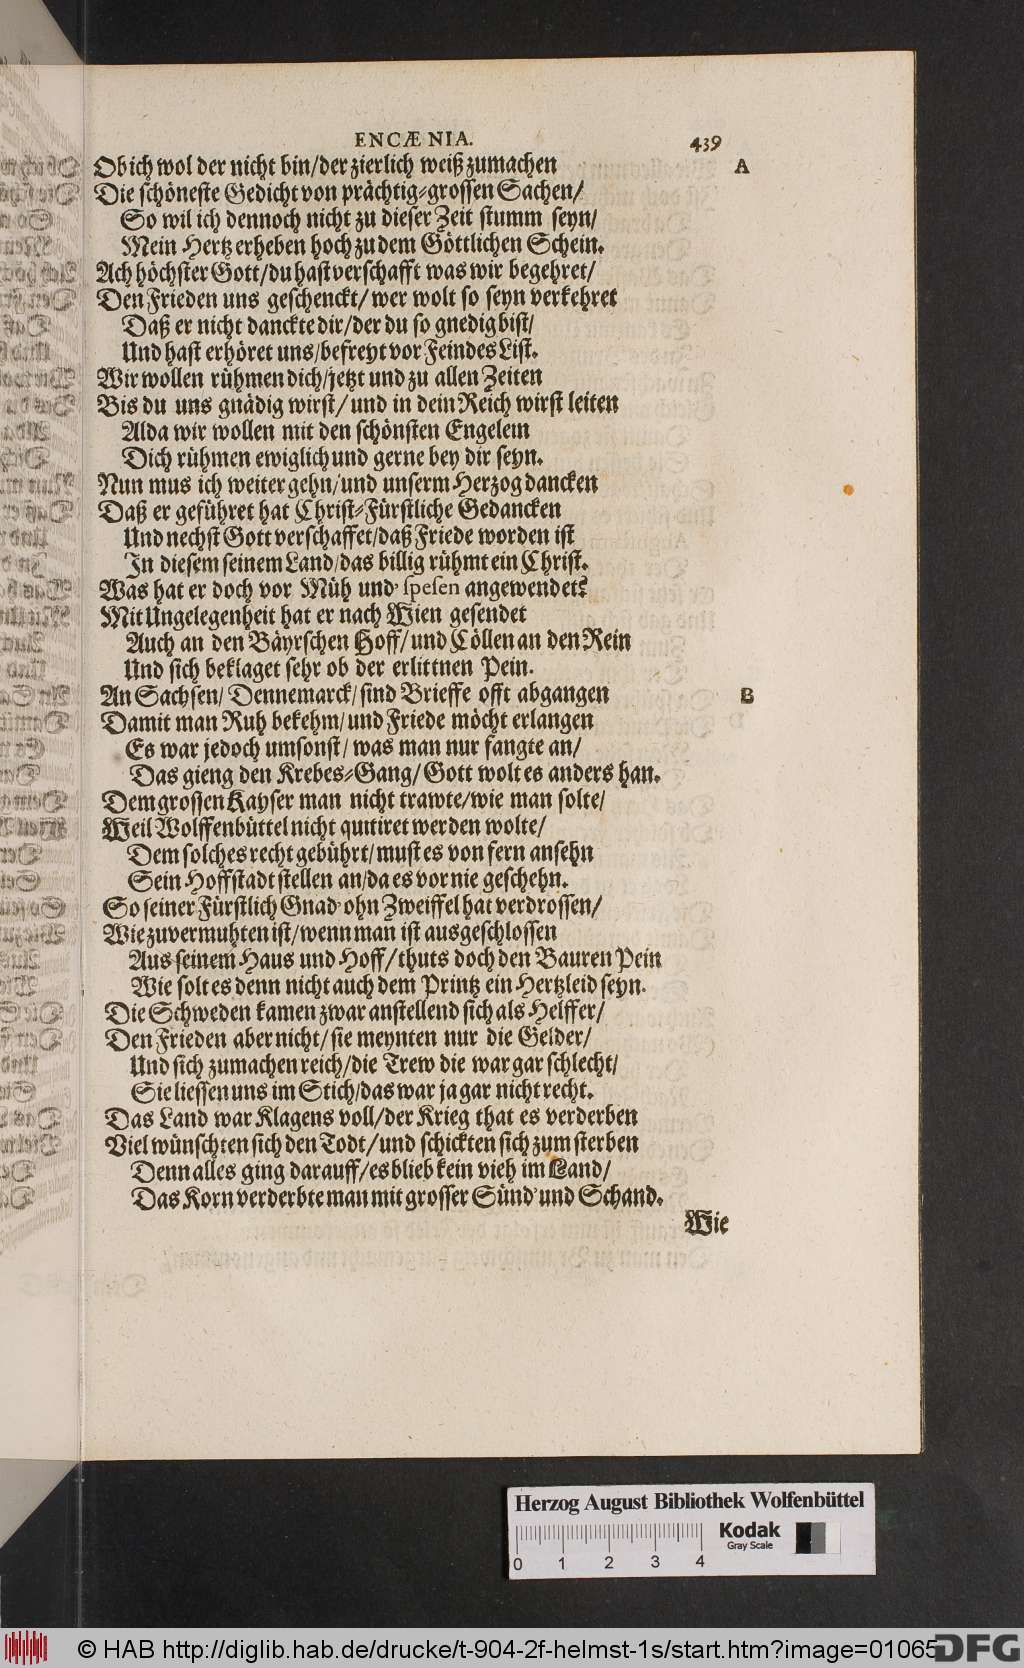 ENCÆNIA. 439
Ob ich wol der nicht bin/der zierlich weiß zumachen A
Die schöneste Gedicht von prächtig-grossen Sachen/
So wil ich dennoch nicht zu dieser Zeit stumm seyn/
Mein Hertz erheben hoch zu dem Göttlichen Schein.
Ach höchster Gott/du hast verschafft was wir begehret/
Den Frieden uns geschenckt/wer wolt so seyn verkehret
Daß er nicht danckte dir/der du so gnedig bist/
Und hast erhöret uns/befreyt vor Feindes List.
Wir wollen rühmen dich/jetzt und zu allen Zeiten
Bis du uns gnädig wirst/und in dein Reich wirst leiten
Alda wir wollen mit den schönsten Engelein
Dich rühmen ewiglich und gerne bey dir seyn.
Nun mus ich weiter gehn/und unserm Herzog dancken
Daß er geführet hat Christ-Fürstliche Gedancken
Und nechst Gott verschaffet/daß Friede worden ist
In diesem seinem Land/das billig rühmt ein Christ.
Was hat er doch vor Müh und spesen angewendet?
Mit Ungelegenheit hat er nach Wien gesendet
Auch an den Bäyrschen Hoff/und Cöllen an den Rein
Und sich beklaget sehr ob der erlittnen Pein.
An Sachsen/Dennemarck/sind Brieffe offt abgangen B
Damit man Ruh bekehm/und Friede möcht erlangen
Es war jedoch umsonst/was man nur fangte an/
Das gieng den Krebes-Gang/Gott wolt es anders han.
Dem grossen Kayser man nicht trawte/wie man solte/
Weil Wolffenbüttel nicht quitiret werden wolte/
Dem solches recht gebührt/must es von fern ansehn
Sein Hoffstadt stellen an/da es vor nie geschehn.
So seiner Fürstlich Gnad' ohn Zweiffel hat verdrossen/
Wie zuvermuhten ist/wenn man ist ausgeschlossen
Aus seinem Haus und Hoff/thuts doch den Bauren Pein
Wie solt es denn nicht auch dem Printz ein Hertzleid seyn.
Die Schweden kamen zwar anstellend sich als Helffer/
Den Frieden aber nicht/sie meynten nur die Gelder/
Und sich zumachen reich/die Trew die war gar schlecht/
Sie liessen uns im Stich/das war ja gar nicht recht.
Das Land war Klagens voll/der Krieg that es verderben
Viel wünschten sich den Todt/und schickten sich zum sterben
Denn alles ging darauff/es blieb kein vieh im Land/
Das Korn verderbte man mit grosser Sünd' und Schand.
Wie
Herzog August Bibliothek Wolfenbüttel
Kodak
Gray Scale
0 1 2 3 4
© HAB http://diglib.hab.de/drucke/t-904-2f-helmst-1s/start.htm?image=01065
DFG